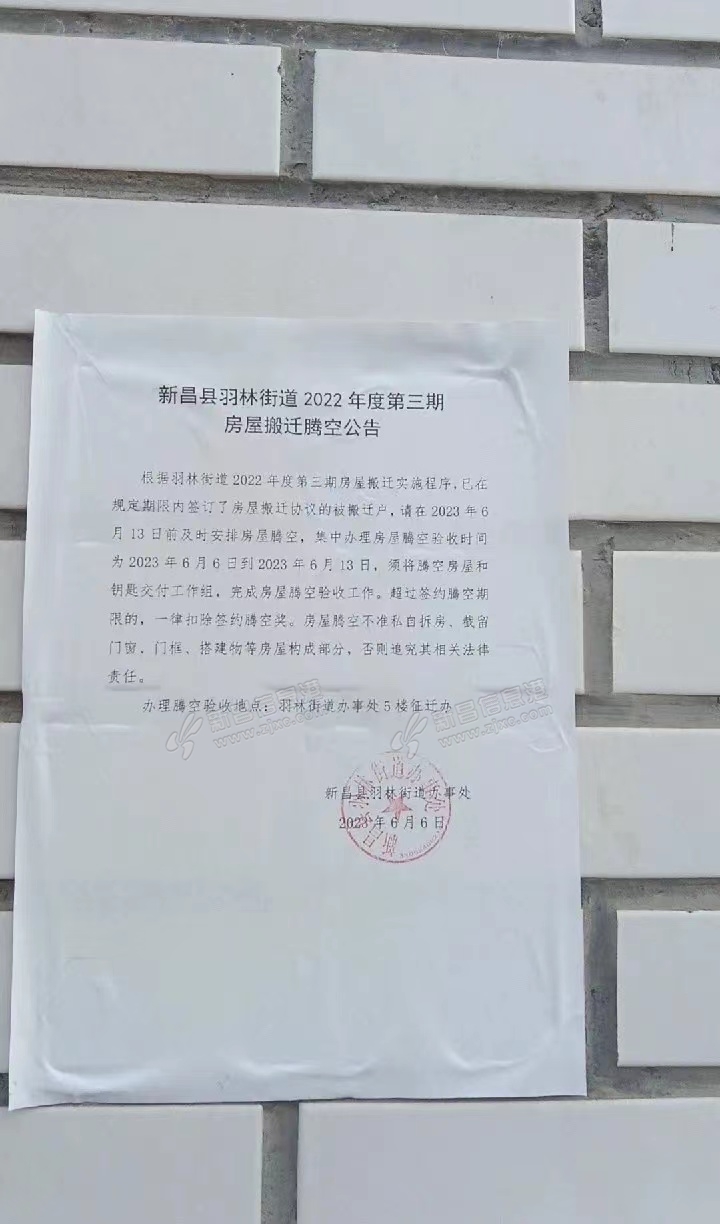 新昌县羽林街道 2022 年度第三期
房屋搬迁腾空公告
根据羽林街道 2022 年度第三期房屋搬迁实施程序，已在
规定期限内签订了房屋搬迁协议的被搬迁户，请在 2023 年 6
月 13 日前及时安排房屋腾空，集中办理房屋腾空验收时间
为 2023 年 6 月 6 日到 2023 年 6 月 13 日，须将腾空房屋和
钥匙交付工作组，完成房屋腾空验收工作。超过签约腾空期
限的，一律扣除签约腾空奖。房屋腾空不准私自拆房、截留
门窗、门框、搭建物等房屋构成部分，否则追究其相关法律
责任。
办理腾空验收地点：羽林街道办事处 5 楼征迁办
新昌信息港
www.zjxc.com
新昌信息港
www.zjxc.com
新昌县羽林街道办事处
2023 年 6 月 6 日
新昌县羽林街道办事处